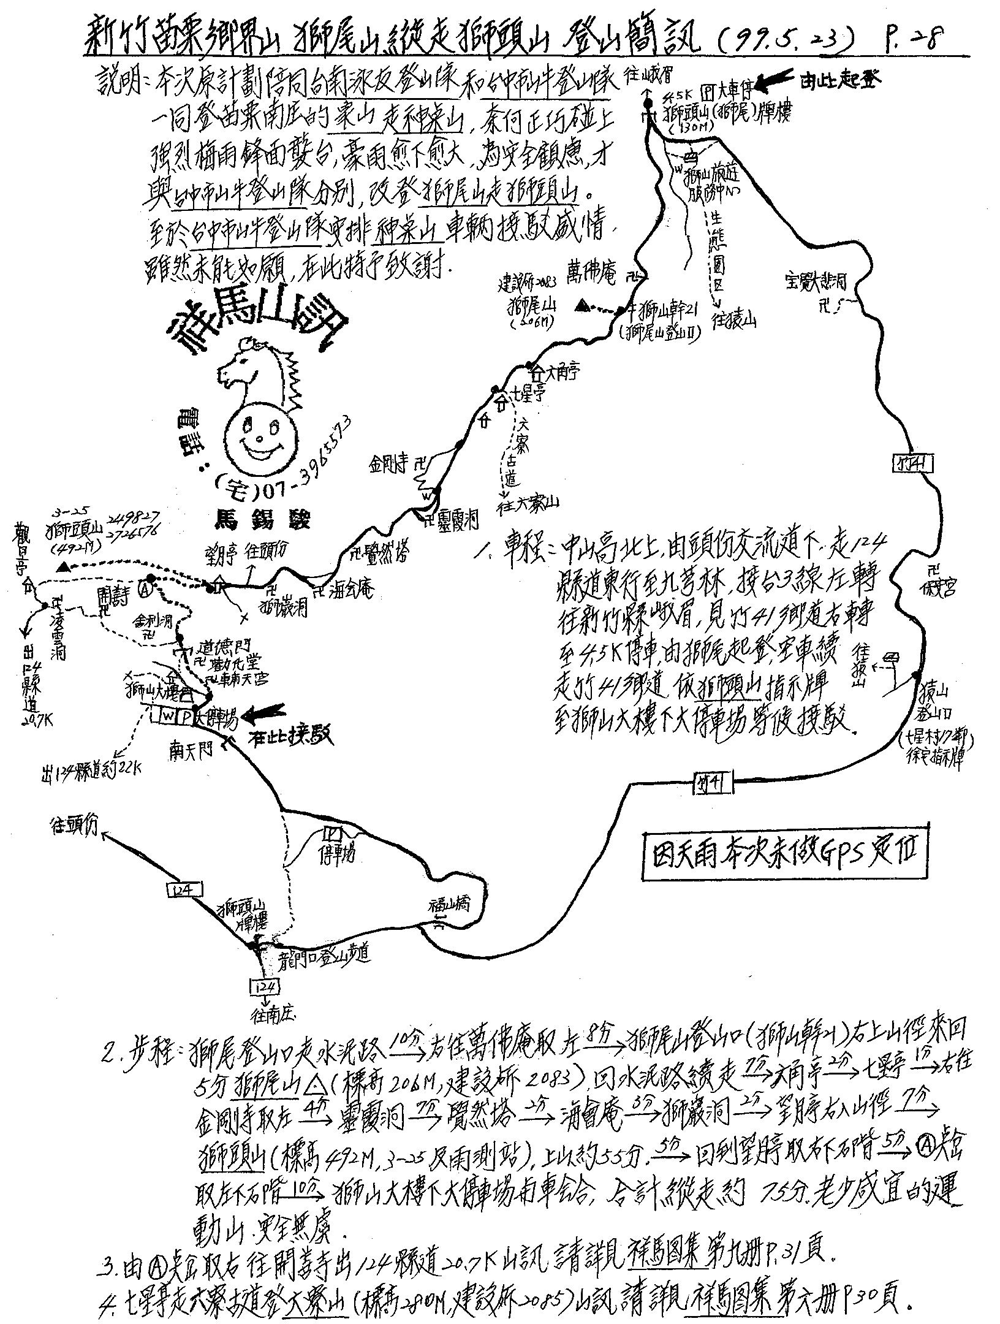 新竹苗栗鄉界山 獅尾山縱走獅頭山 登山簡訊 (99.5.23) P.28
說明：本次原計劃陪同台南泳友登山隊和台中市山牛登山隊
一同登苗栗南庄的栗山走神桌山，奈何正巧碰上
強烈梅雨鋒面襲台，豪雨愈下愈大，為安全顧慮，才
與台中市山牛登山隊分別，改登獅尾山走獅頭山。
至於台中市山牛登山隊安排神桌山車輛接駁盛情，
雖然未能如願，在此特予致謝．
祥馬山訊
電話：(宅)07-3965573
馬錫駿
往峨眉
4.5K P 大車停
獅頭山(獅尾)牌樓
(130M)
由此起登
W 獅山旅遊
服務中心
生態園區
往猿山
萬佛庵
建設所2083
獅尾山
(206M)
獅山幹21
(獅尾山登山口)
六角亭
七星亭
六寮古道
往六寮山
金剛寺
W
靈霞洞
覺然塔
海會庵
獅巖洞
望月亭
往頭份
3-25
獅頭山 249827
(492M) 2726576
觀日亭
凌雲洞
出124縣道20.7K
開善寺
A
金剛洞
道德門
勸化堂
輔天宮
獅山大樓
W P 大停車場
在此接駁
南天門
出124縣道約22K
宝覺大悲洞
竹41
保安宮
往猿山
猿山
登山口
(七星村12鄰
徐宅指示牌
竹41
1. 車程：中山高北上，由頭份交流道下．走124
縣道東行至九芎林，接台3線左轉
往新竹縣峨眉，見竹41鄉道右轉
至4.5K停車，由獅尾起登，空車續
走竹41鄉道 依獅頭山指示牌
至獅山大樓下大停車場等候接駁．
因天雨本次未做GPS定位
往頭份
124
獅頭山
牌樓
P
停車場
福山橋
龍門口登山步道
124
往南庄
2. 步程：獅尾登山口走水泥路 10分→ 右往萬佛庵取左 8分→ 獅尾山登山口(獅山幹21)右上山徑來回
5分獅尾山△(標高206M，建設所2083)，回水泥路續走 7分→ 六角亭 2分→ 七星亭 1分→ 右往
金剛寺取左 4分→ 靈霞洞 7分→ 覺然塔 2分→ 海會庵 3分→ 獅巖洞 2分→ 望月亭右入山徑 7分→
獅頭山(標高492M，3-25及雨測站)，上山約55分． 5分→ 回到望月亭取右下石階 5分→ Ⓐ點岔
取左下石階 10分→ 獅山大樓下大停車場與車會合，合計縱走約75分．老少咸宜的運
動山．安全無慮．
3. 由Ⓐ點岔取右往開善寺出124縣道20.7K山訊 請詳見祥馬图集第九册P.31頁．
4. 七星亭走六寮古道登六寮山(標高280M，建設所2085)山訊 請詳見祥馬图集第六册P30頁．